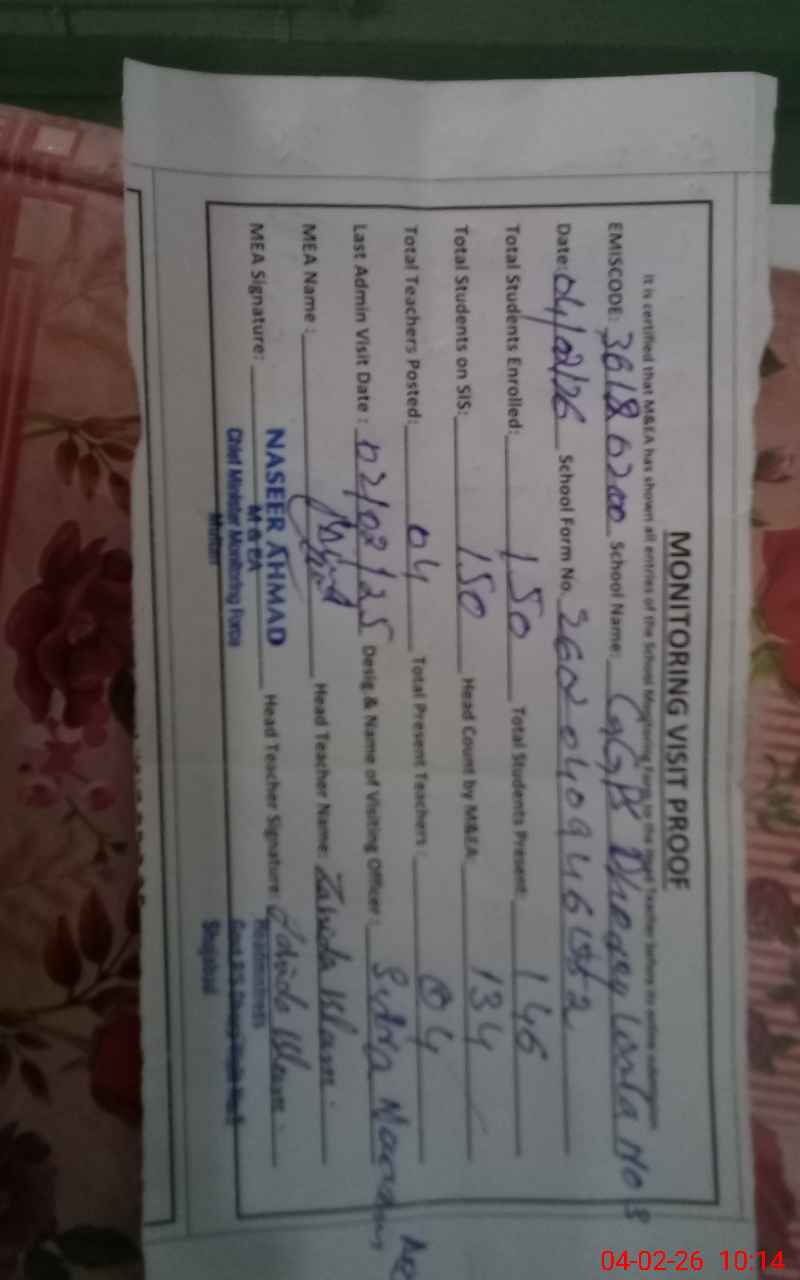 MONITORING VISIT PROOF
It is certified that M&EA has shown all entries of the School Monitoring Form to the Head Teacher before its online submission
EMISCODE: 36186200 School Name: GGPS Wala No 3
Date: 04/02/26 School Form No.
Total Students Enrolled: 150 Total Students Present: 146
Total Students on SIS: 150 Head Count by M&EA: 134
Total Teachers Posted: 04 Total Present Teachers: 04
Last Admin Visit Date: 02/02/25 Desig & Name of Visiting Officer:
MEA Name: Head Teacher Name: Islam
MEA Signature: Head Teacher Signature:
NASEER AHMAD
M & EA
Chief Minister Monitoring Force
Multan
Headmistress
Shujabad
04-02-26 10:14